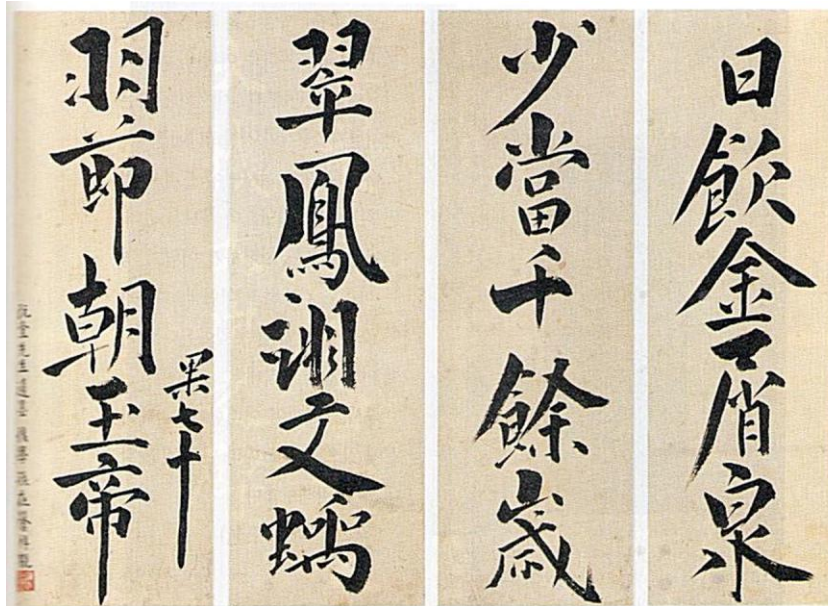 日飲金屑泉
少當千餘歲
翠鳳翊文螭
羽節朝玉帝
果七十
先生遺墨 後學